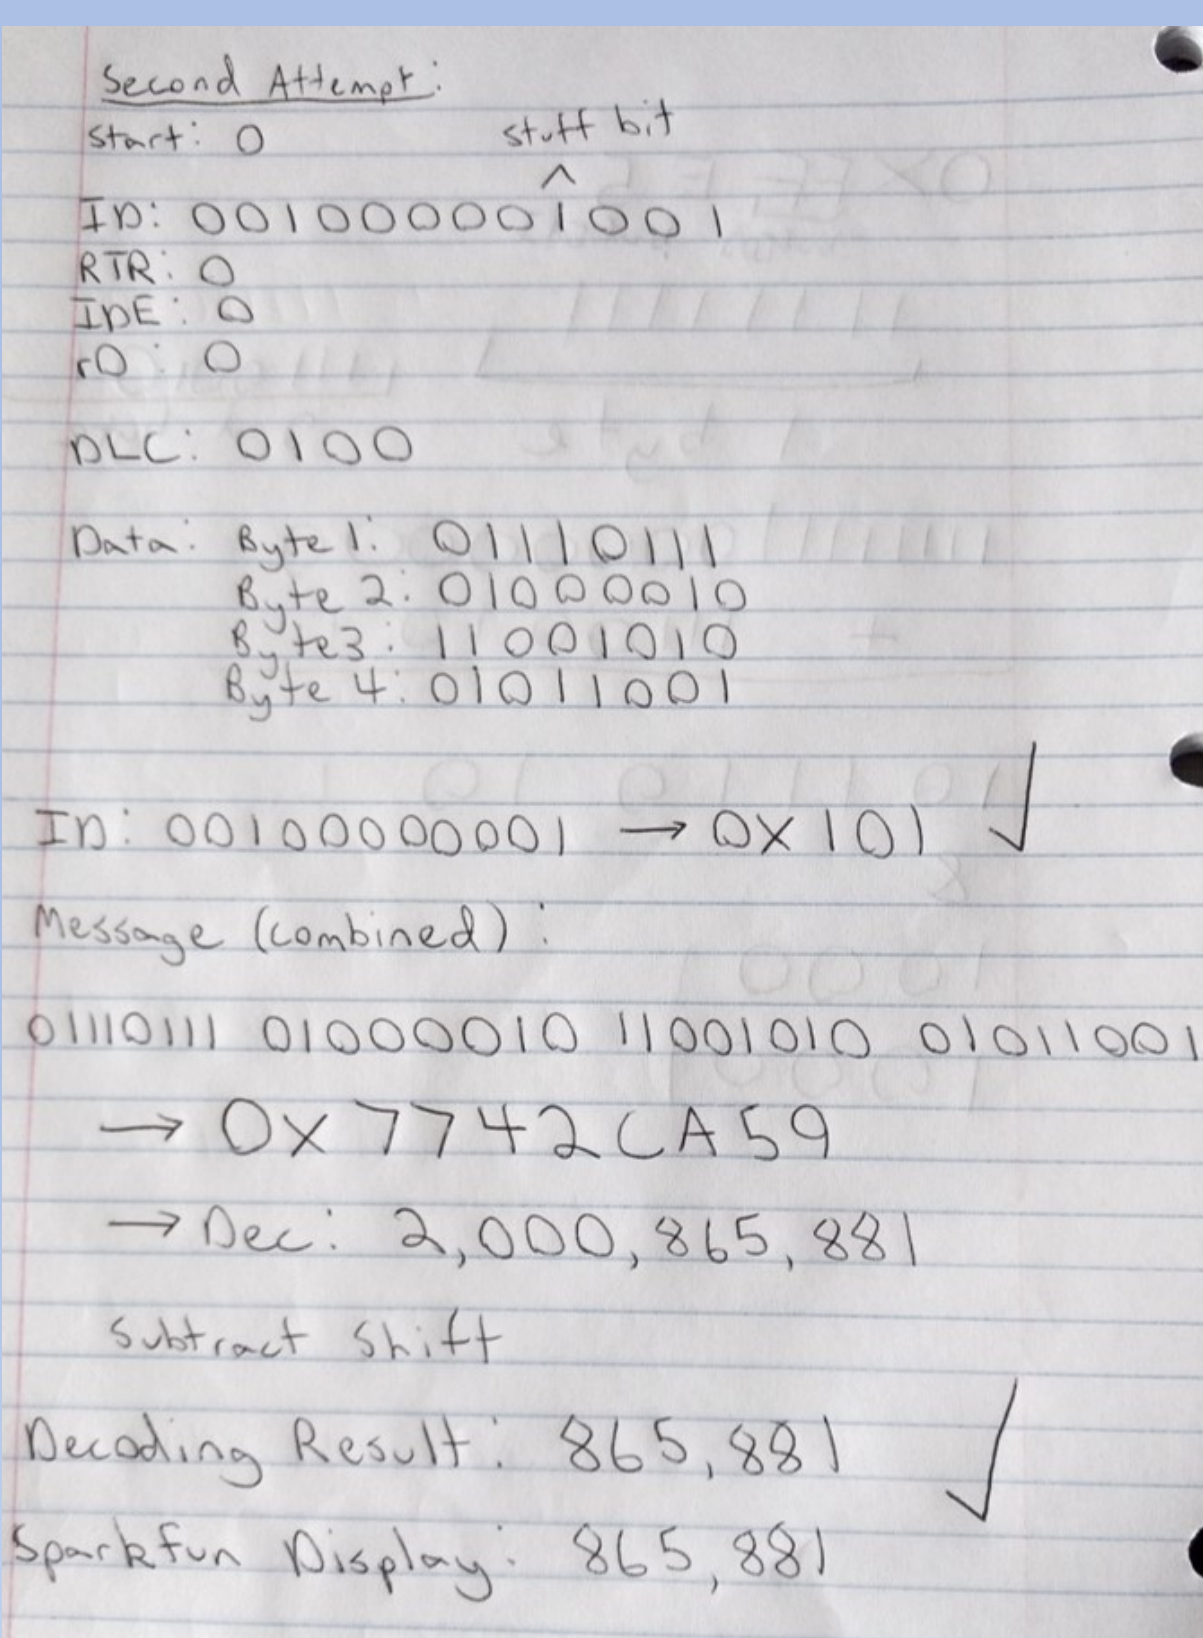 Second Attempt:
Start: 0 stuff bit
^
ID: 001000001001
RTR: 0
IDE: 0
r0: 0
DLC: 0100
Data: Byte 1: 01110111
Byte 2: 01000010
Byte 3: 11001010
Byte 4: 01011001
ID: 00100000001 → 0X101 ✓
Message (combined):
01110111 01000010 11001010 01011001
→ 0X7742CA59
→ Dec: 2,000,865,881
Subtract Shift
Decoding Result: 865,881 ✓
Sparkfun Display: 865,881